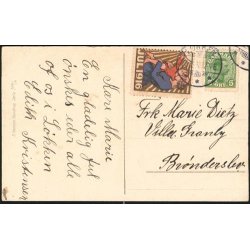 Kære Marie
En glædelig Jul
ønskes eder alle
af os i Løkken
Edith Kristensen
JUL 1916
Frk Marie Dietz
Villa Frantz
Brønderslev